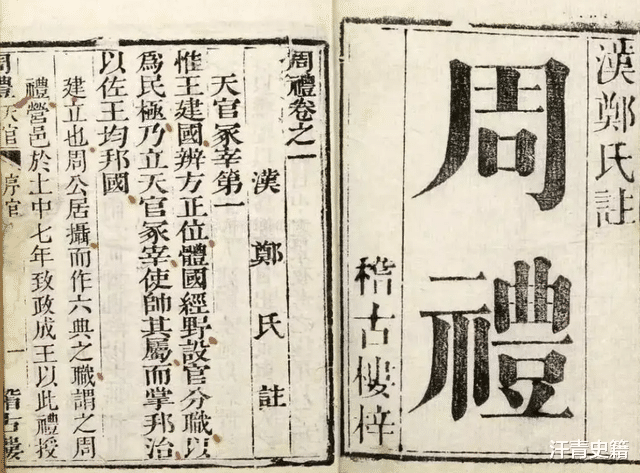 漢鄭氏註
周禮
稽古樓梓
周禮卷之一
漢鄭氏註
天官冢宰第一
惟王建國辨方正位體國經野設官分職以
爲民極乃立天官冢宰使帥其屬而掌邦治
以佐王均邦國
建立也周公居攝而作六典之職謂之周
禮營邑於土中七年致政成王以此禮授
周禮 天官 序官 一 稽古樓
汗青史籍